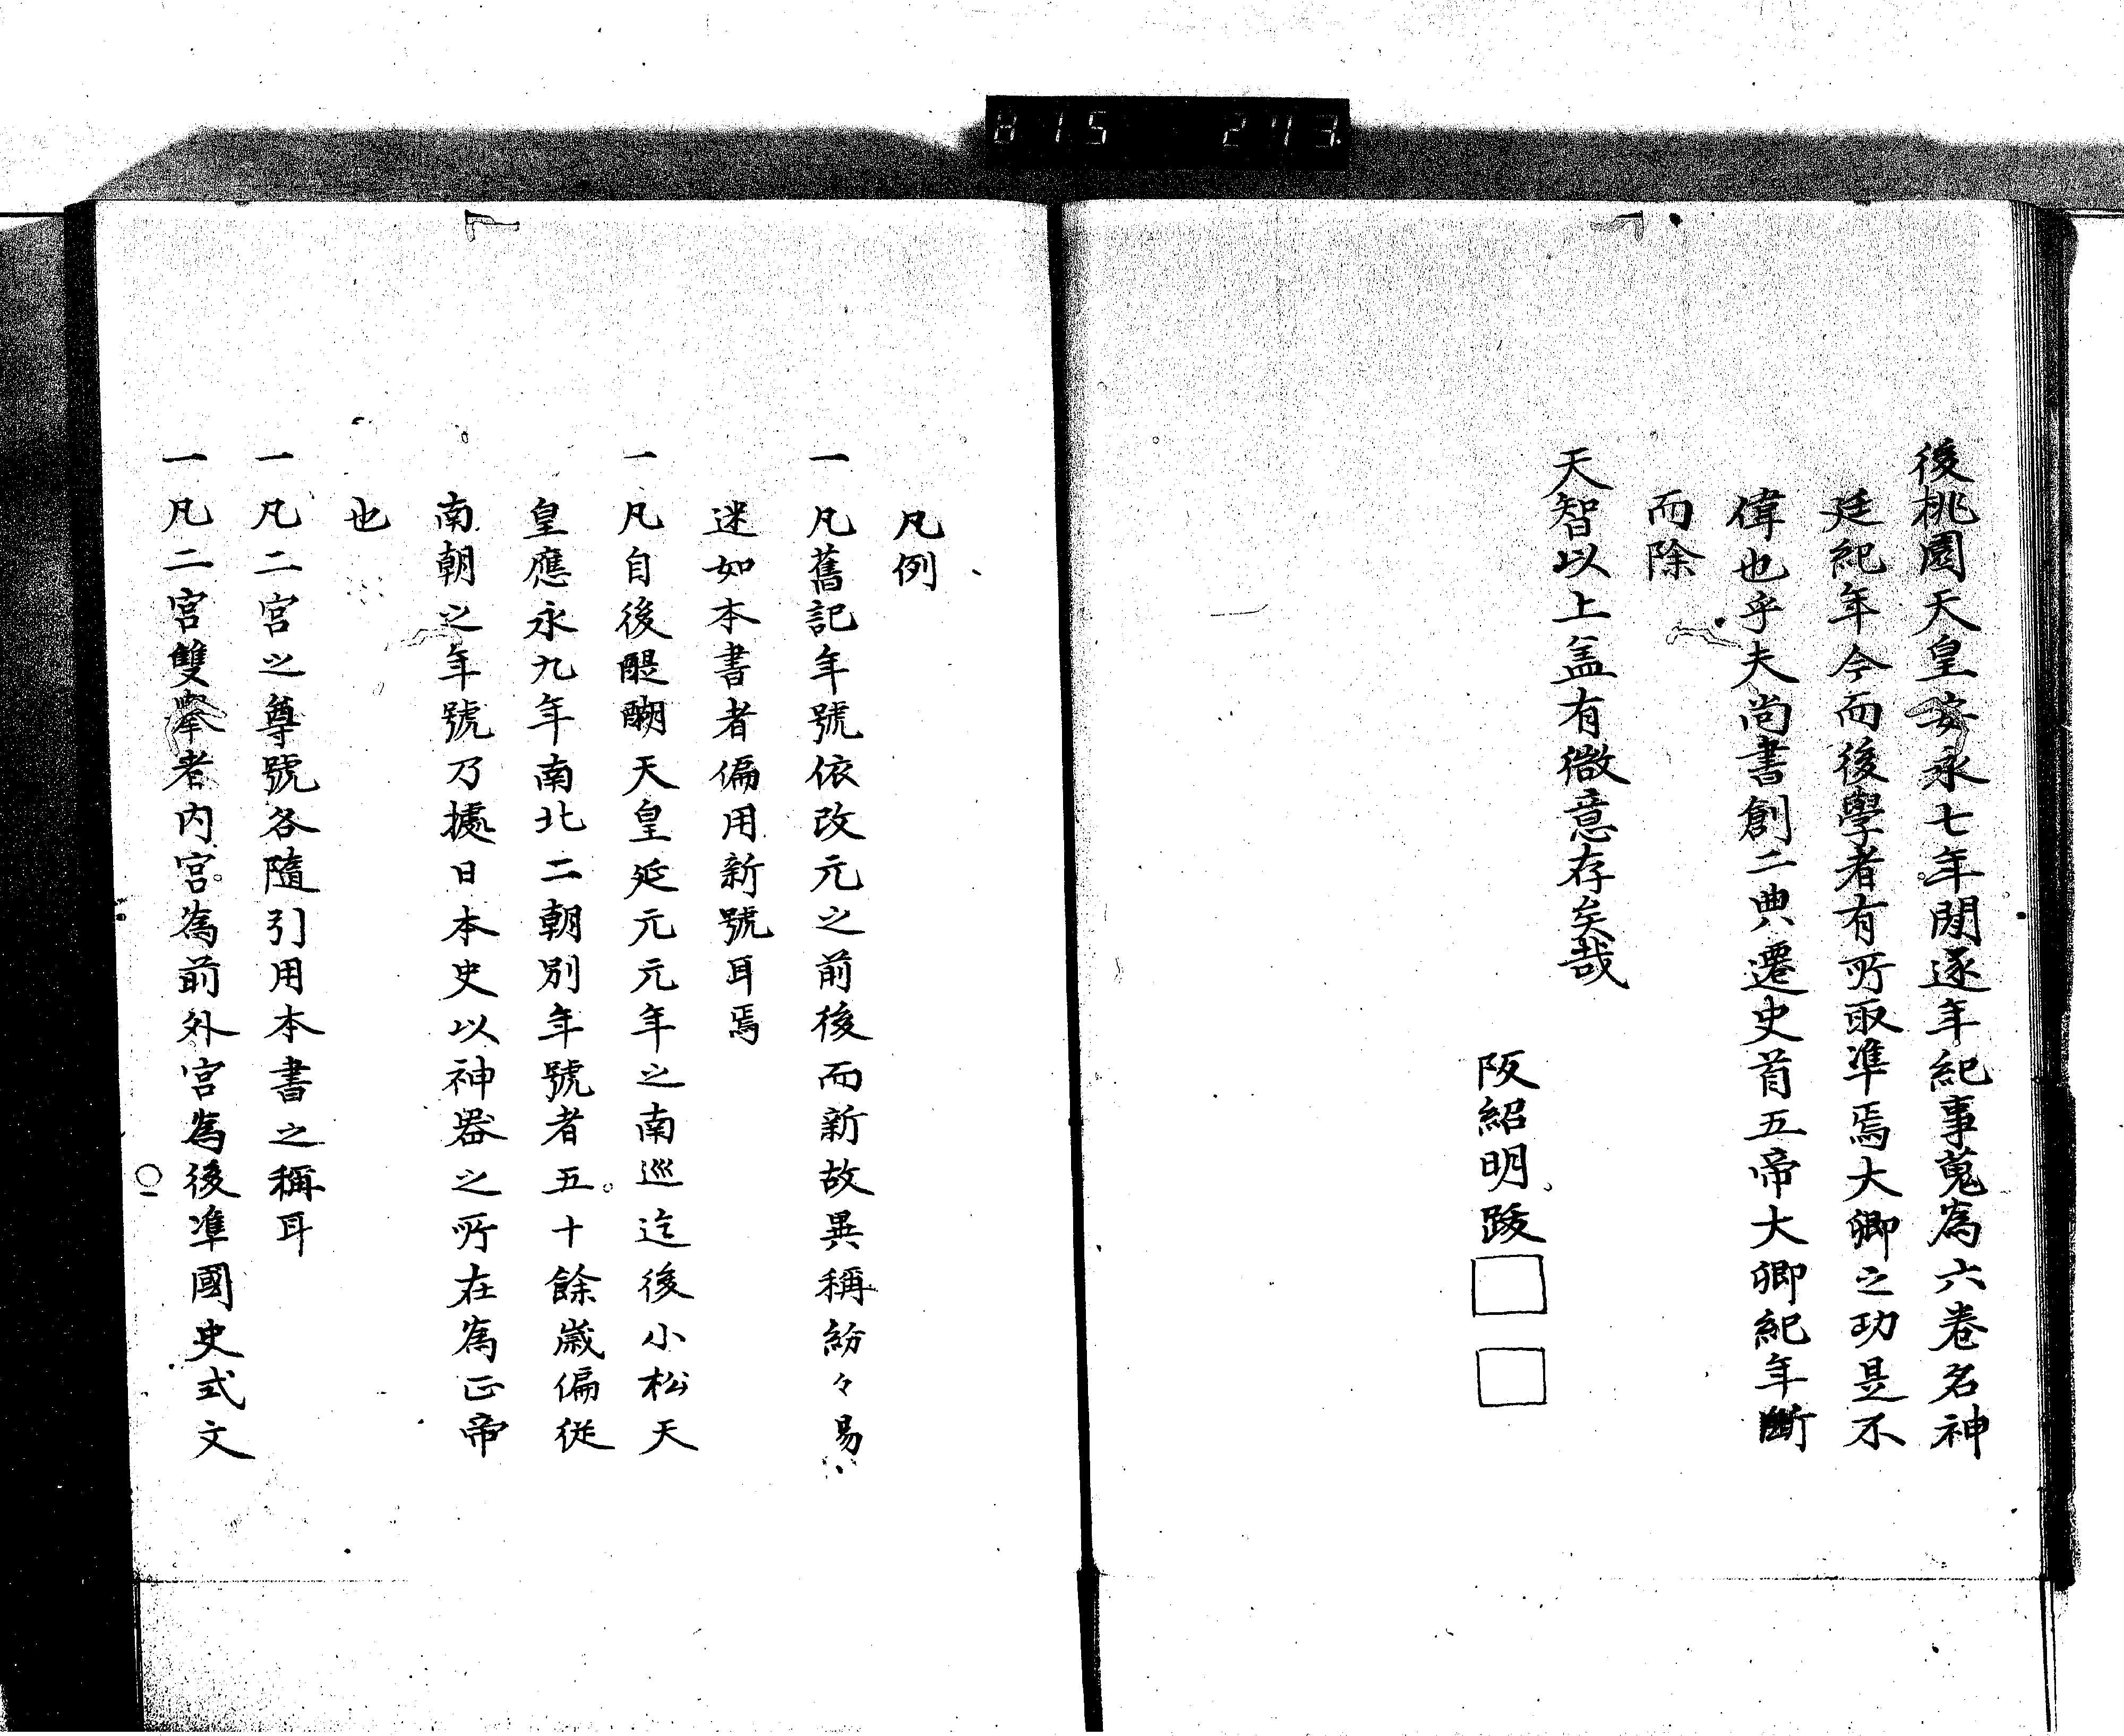 815 243
後桃園天皇安永七年間逐年紀事蒐為六卷名神
廷紀年今而後學者有所取準焉大卿之功是不
偉也乎夫尚書創二典遷史首五帝大卿紀年斷
而除
天智以上盖有微意存矣哉
阪紹明跋
凡例
一凡舊記年號依改元之前後而新故異稱紛々易
迷如本書者偏用新號耳焉
一凡自後醍醐天皇延元元年之南巡迄後小松天
皇應永九年南北二朝別年號者五十餘歲偏從
南朝之年號乃據日本史以神器之所在為正帝
也
一凡二宮之尊號各隨引用本書之稱耳
一凡二宮雙擧者内宮為前外宮為後準國史式文